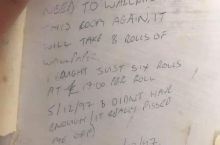 NEED TO WALLPAPER
THIS ROOM AGAIN, IT
WILL TAKE 8 ROLLS OF
WALLPAPER
I BOUGHT JUST SIX ROLLS
AT £17.00 PER ROLL
5/12/97 & DIDN'T HAVE
ENOUGH, IT REALLY PISSED
ME OFF
/97